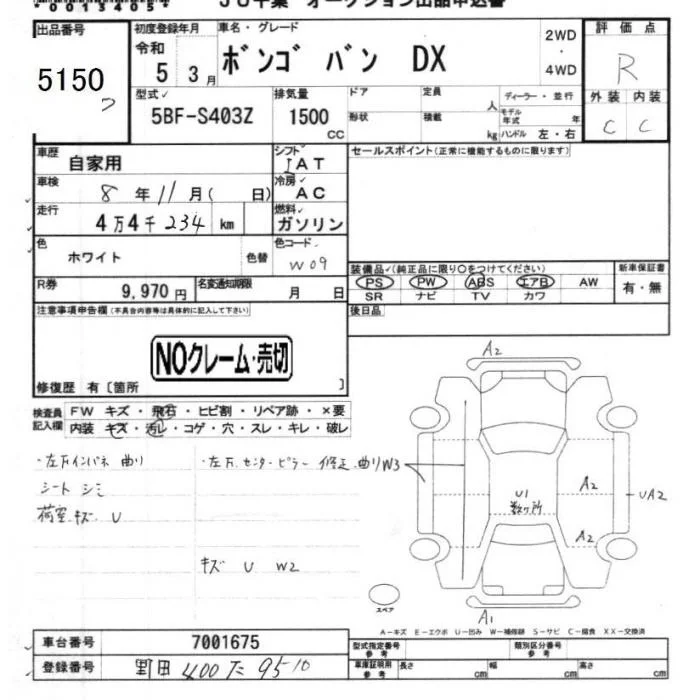 00134054
JU千葉 オークション出品申込書
出品番号 5150
初度登録年月 令和 5 3月
車名・グレード ボンゴ バン DX
2WD・4WD
評価点 R
外装 C 内装 C
型式 5BF-S403Z
排気量 1500 CC
ドア 形状
定員 人 積載 kg
ディーラー・並行
モデル年式 年
ハンドル 左・右
車歴 自家用
シフト IAT
セールスポイント(正常に機能するものに限ります)
車検 8年11月( 日)
冷房 AC
走行 4万4千234 km
燃料 ガソリン
色 ホワイト 色替
色コード W09
装備品(純正品に限り〇をつけてください)
新車保証書
PS PW ABS エアB AW
SR ナビ TV カワ
有・無
R券 9,970円
名変通知期限 月 日
注意事項申告欄(不具合内容等は具体的に記入して下さい)
後日品
NOクレーム・売切
修復歴 有〔箇所 〕
検査員記入欄
FW キズ・飛石・ヒビ割・リペア跡・×要
内装 キズ・汚レ・コゲ・穴・スレ・キレ・破レ
・左方インパネ 曲り
・左方.センターピラー 修正.曲りW3
シート シミ
荷室キズ U
キズ U W2
A2
U1 数ヶ所
A2
UA2
A2
A1
スペア
A－キズ E－エクボ U－凹み W－補修跡 S－サビ C－腐食 XX－交換済
車台番号 7001675
型式指定番号 参考
類別区分番号 参考
登録番号 野田 400 た 95-10
車庫証明用 参考 長さ cm 幅 cm 高さ cm